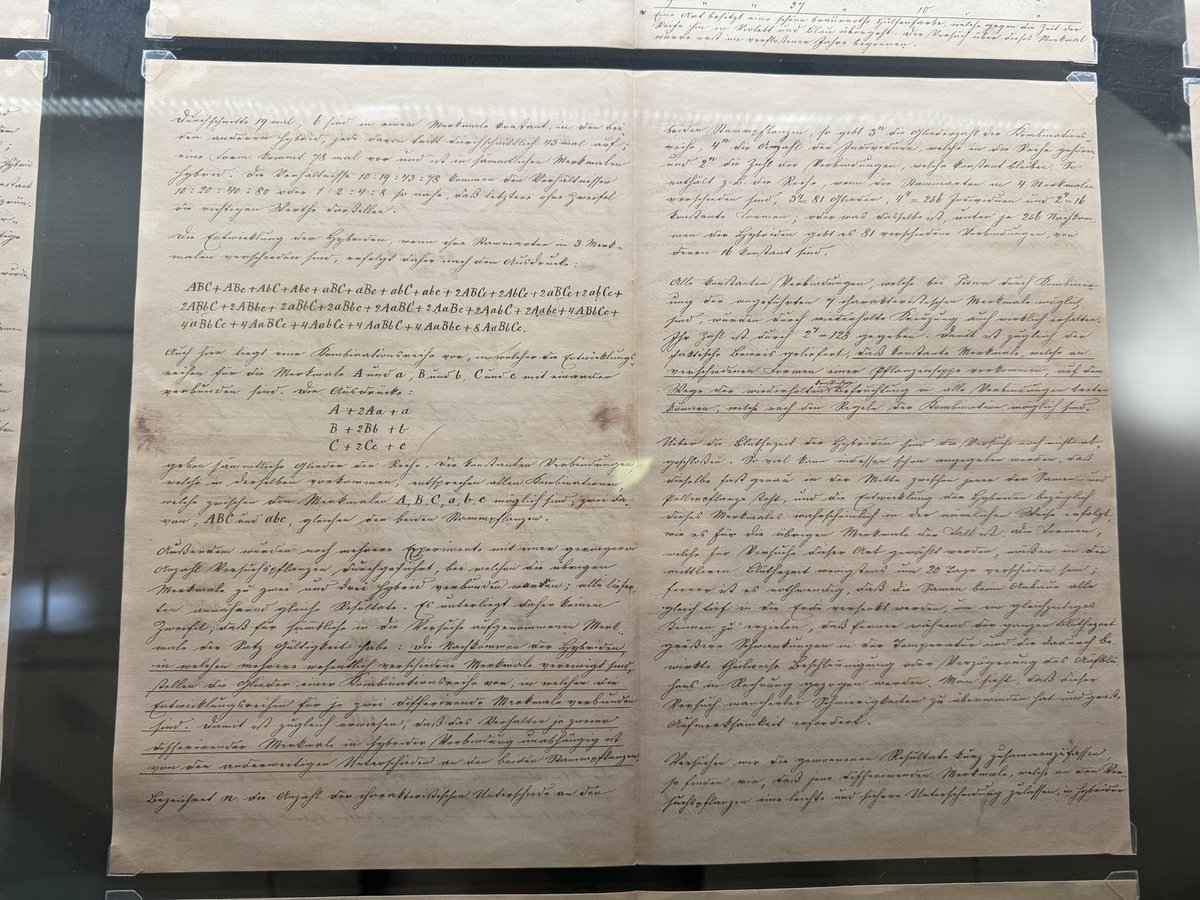 * Eine Art besitzt eine schöne braunrothe Hülsenfarbe, welche gegen die Zeit der
Reife hin in Violett und Blau übergeht. Der Versuch über dieses Merkmal
wurde erst im verflossenen Jahre begonnen.
Durchschnitte 19 mal; 6 sind in einem Merkmale konstant, in den bei-
den anderen hybrid, jede davon tritt durchschnittlich 43 mal auf;
eine Form kommt 78 mal vor und ist in sämmtlichen Merkmalen
hybrid. Die Verhältnisse 10:19:43:78 kommen den Verhältnissen
10:20:40:80 oder 1:2:4:8 so nahe, daß letztere ohne Zweifel
die richtigen Werthe darstellen.
Die Entwicklung der Hybriden, wenn ihre Stammarten in 3 Merk-
malen verschieden sind, erfolgt daher nach dem Ausdrucke:
ABC + ABc + AbC + Abc + aBC + aBc + abC + abc + 2ABCc + 2AbCc + 2aBCc + 2abCc +
2ABbC + 2ABbc + 2aBbC + 2aBbc + 2AaBC + 2AaBc + 2AabC + 2Aabc + 4ABbCc +
4aBbCc + 4AaBCc + 4AabCc + 4AaBbC + 4AaBbc + 8AaBbCc.
Auch hier liegt eine Kombinationsreihe vor, in welcher die Entwicklungs-
reihen für die Merkmale A und a, B und b, C und c mit einander
verbunden sind. Die Ausdrücke:
A + 2Aa + a
B + 2Bb + b
C + 2Cc + c
geben sämmtliche Glieder der Reihe. Die konstanten Verbindungen,
welche in derselben vorkommen, entsprechen allen Kombinationen,
welche zwischen den Merkmalen A, B, C, a, b, c möglich sind; zwei da-
von, ABC und abc, gleichen den beiden Stammpflanzen.
Außerdem wurden noch mehrere Experimente mit einer geringeren
Anzahl Versuchspflanzen durchgeführt, bei welchen die übrigen
Merkmale zu zwei und drei hybrid verbunden waren; alle liefer-
ten annähernd gleiche Resultate. Es unterliegt daher keinem
Zweifel, daß für sämtliche in die Versuche aufgenommenen Merk-
male der Satz Gültigkeit habe: Die Nachkommen der Hybriden,
in welchen mehrere wesentlich verschiedene Merkmale vereinigt sind,
stellen die Glieder einer Kombinationsreihe vor, in welchen die
Entwicklungsreihen für je zwei differirende Merkmale verbunden
sind. Damit ist zugleich erwiesen, daß das Verhalten je zweier
differirender Merkmale in hybrider Verbindung unabhängig ist
von den anderweitigen Unterschieden an den beiden Stammpflanzen.
Bezeichnet n die Anzahl der charakteristischen Unterschiede an den
beiden Stammpflanzen, so gibt 3ⁿ die Gliederzahl der Kombinations-
reihe, 4ⁿ die Anzahl der Individuen, welche in die Reihe gehören,
und 2ⁿ die Zahl der Verbindungen, welche konstant bleiben. So
enthält z.B. die Reihe, wenn die Stammarten in 4 Merkmalen
verschieden sind, 3⁴ = 81 Glieder, 4⁴ = 256 Individuen und 2⁴ = 16
konstante Formen; oder was dasselbe ist, unter je 256 Nachkom-
men der Hybriden gibt es 81 verschiedene Verbindungen, von
denen 16 konstant sind.
Alle konstanten Verbindungen, welche bei Pisum durch Kombinir-
ung der angeführten 7 charakteristischen Merkmale möglich
sind, wurden durch wiederholte Kreuzung auch wirklich erhalten.
Ihre Zahl ist durch 2⁷ = 128 gegeben. Damit ist zugleich der
faktische Beweis geliefert, daß konstante Merkmale, welche an
verschiedenen Formen einer Pflanzensippe vorkommen, auf dem
Wege der wiederholten künstlichen Befruchtung in alle Verbindungen treten
können, welche nach den Regeln der Kombination möglich sind.
Ueber die Blüthezeit der Hybriden sind die Versuche noch nicht ab-
geschlossen. So viel kann indessen schon angegeben werden, daß
dieselbe fast genau in der Mitte zwischen jener der Samen- und
Pollenpflanze steht, und die Entwicklung der Hybriden bezüglich
dieses Merkmales wahrscheinlich in der nämlichen Weise erfolgt,
wie es für die übrigen Merkmale der Fall ist. Die Formen,
welche für Versuche dieser Art gewählt werden, müssen in der
mittleren Blüthezeit wenigstens um 20 Tage verschieden sein;
ferner ist es nothwendig, daß die Samen beim Anbaue alle
gleich tief in die Erde versenkt werden, um ein gleichzeitiges
Keimen zu erzielen, daß ferner während der ganzen Blüthezeit
größere Schwankungen in der Temperatur und die dadurch be-
wirkte theilweise Beschleunigung oder Verzögerung des Aufblü-
hens in Rechnung gezogen werden. Man sieht, daß dieser
Versuch mancherlei Schwierigkeiten zu überwinden hat und große
Aufmerksamkeit erfordert.
Versuchen wir die gewonnenen Resultate kurz zusammenzufassen,
so finden wir, daß jene differirenden Merkmale, welche an den Ver-
suchspflanzen eine leichte und sichere Unterscheidung zulassen, in hybrider